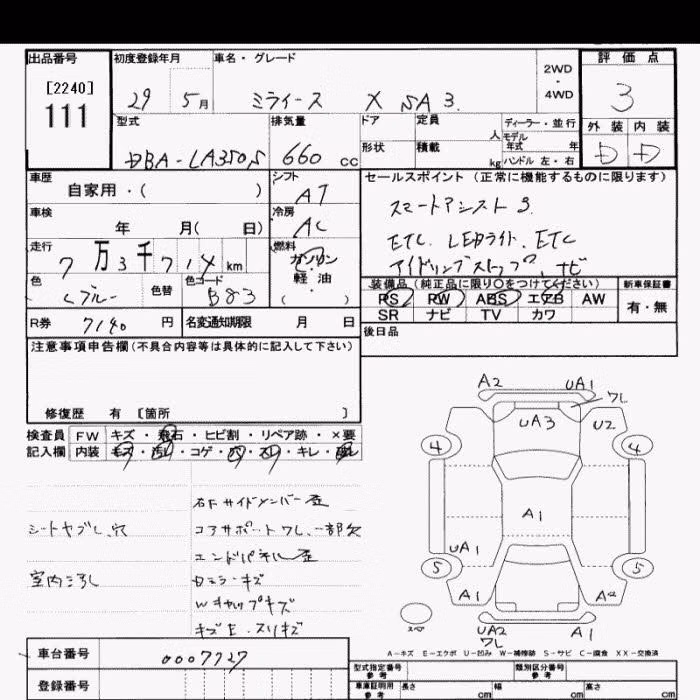 出品番号
[2240]
111
初度登録年月
29 5月
車名・グレード
ミライース X SA 3
2WD
・
4WD
評価点
3
外装 内装
D D
型式
DBA-LA350S
排気量
660 cc
ドア
形状
定員
人
積載
kg
ディーラー・並行
モデル
年式 年
ハンドル 左・右
車歴
自家用・( )
シフト
AT
車検
年 月( 日)
冷房
AC
走行
7万3千714km
燃料
ガソリン
軽油
( )
色
ブルー
色替
色コード
B83
R券
7140 円
名変通知期限 月 日
セールスポイント(正常に機能するものに限ります)
スマートアシスト 3
ETC. LEDライト. ETC
アイドリングストップ. ナビ
装備品(純正品に限り○をつけてください)
PS PW ABS エアB AW
SR ナビ TV カワ
新車保証書
有・無
後日品
注意事項申告欄(不具合内容等は具体的に記入して下さい)
修復歴 有 〔箇所 〕
検査員
記入欄
FW キズ・飛石・ヒビ割・リペア跡・×要
内装 キズ・汚れ・コゲ・穴・スレ・キレ・
シートヤブレ、穴
室内汚れ
右Fサイドメンバー歪
コアサポートワレ、一部欠
エンドパネル歪
ミラーキズ
Wキャップキズ
キズE. スリキズ
A2 UA1
ワレ
UA3 U2
4 4
A1
UA1
5 5
A1
UA2 A1
ワレ
A-キズ E-エクボ U-凹み W-補修跡 S-サビ C-腐食 XX-交換済
車台番号
0007727
登録番号
型式指定番号
参考
類別区分番号
参考
車庫証明用
参考
長さ cm
幅 cm
高さ cm